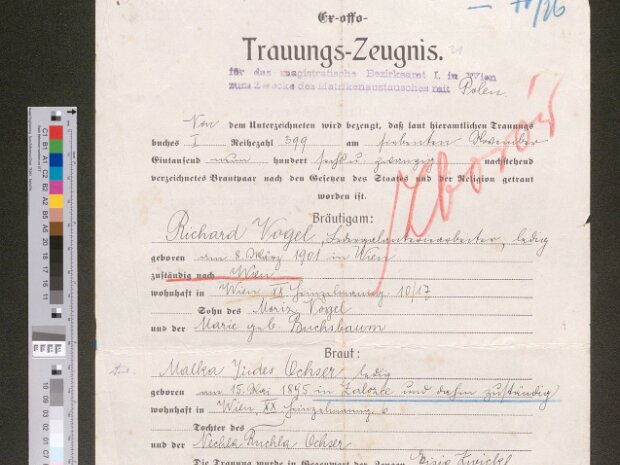 Ex-offo-
Trauungs-Zeugnis.
für das magistratische Bezirksamt I. in Wien
zum Zwecke des Matrikenaustausches mit Polen.
Von dem Unterzeichneten wird bezeugt, daß laut hieramtlichen Trauungs
buches I Reihezahl 399 am siebenten November
Eintausend neun hundert sechs u zwanzig nachstehend
verzeichnetes Brautpaar nach den Gesetzen des Staates und der Religion getraut
worden ist.
Zborów
Bräutigam:
Richard Vogel, Ledergalanteriearbeiter, ledig
geboren am 8. März 1901 in Wien
zuständig nach Wien
wohnhaft in Wien XX 10/17
Sohn des Moriz Vogel
und der Marie geb. Buchsbaum
Braut:
Malka Jindes Ochser ledig
geboren am 15. Mai 1895 in Zalozce und dahin zuständig
wohnhaft in Wien, XX 6
Tochter des
und der Nechla Ruchla Ochser
Die Trauung wurde in Gegenwart der Zeugen Eisig Zwickel